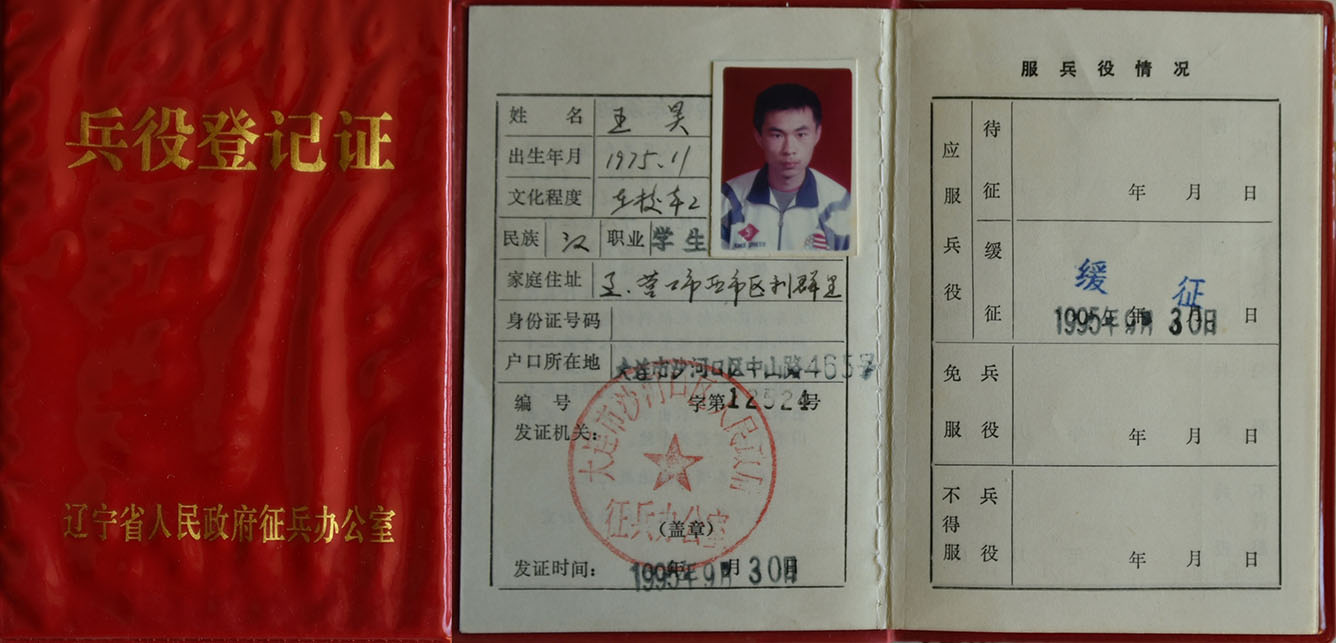 兵役登记证
辽宁省人民政府征兵办公室
姓 名 王昊
出生年月 1975.11
文化程度 在校本二
民族 汉 职业 学生
家庭住址 辽.营口市西市区利群里
身份证号码
户口所在地 大连市沙河口区中山路465号
编 号 字第12524号
发证机关:
大连市沙河口区人民政府
征兵办公室
(盖章)
发证时间: 1995年9月30日
服兵役情况
应服兵役
待征
年 月 日
缓征
缓征
1995年9月30日
年 月 日
免服兵役
年 月 日
不得服兵役
年 月 日